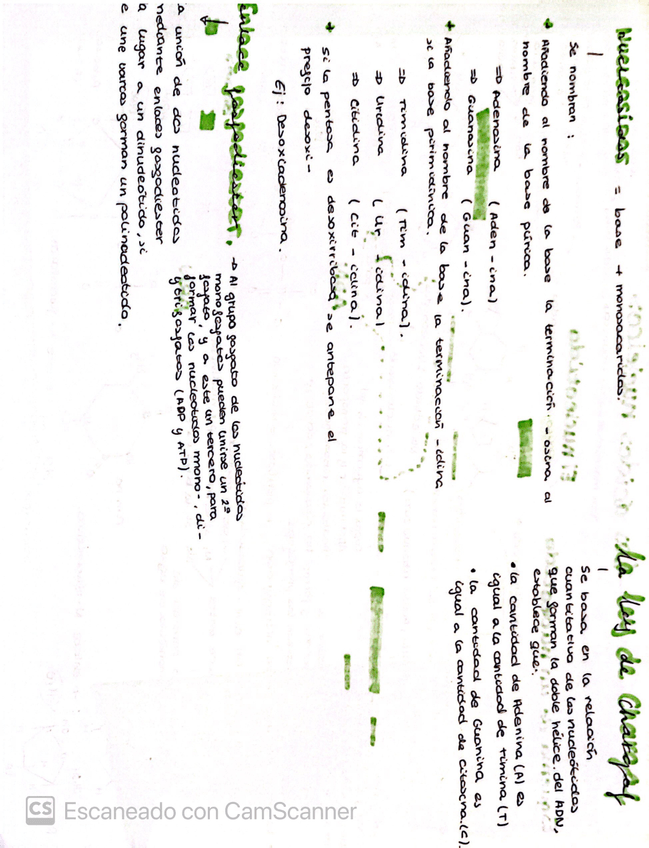 Nucleósidos = base + monosacáridos.
Se nombran :
→ Añadiendo al nombre de la base la terminación - osina al
nombre de la base púrica.
⇒ Adenosina (Aden - ina)
⇒ Guanosina (Guan - ina).
+ Añadiendo al nombre de la base la terminación - idina
si la base pirimidínica.
⇒ Timidina (Tim - idina).
⇒ Uridina (Ur - idina)
⇒ Citidina (Cit - idina).
+ Si la pentosa es desoxirribosa, se antepone el
prefijo desoxi -
Ej: Desoxiadenosina.
Enlace fosfodiester.
a unión de dos nucleótidos
mediante enlaces fosfodiester
a lugar a un dinucleótido, si
e une varios forman un polinucleótido.
→ Al grupo fosfato de los nucleótidos
monofosfatos pueden unirse un 2º
fosfato, y a este un tercero, para
formar los nucleótidos mono-, di-
y trifosfatos (ADP y ATP).
La ley de Chargaf
Se basa en la relación
cuantitativa de los nucleótidos
que forman la doble hélice del ADN,
establece que:
• la cantidad de Adenina (A) es
igual a la cantidad de timina (T)
• la cantidad de Guanina es
igual a la cantidad de Citosina (C).
CS Escaneado con CamScanner